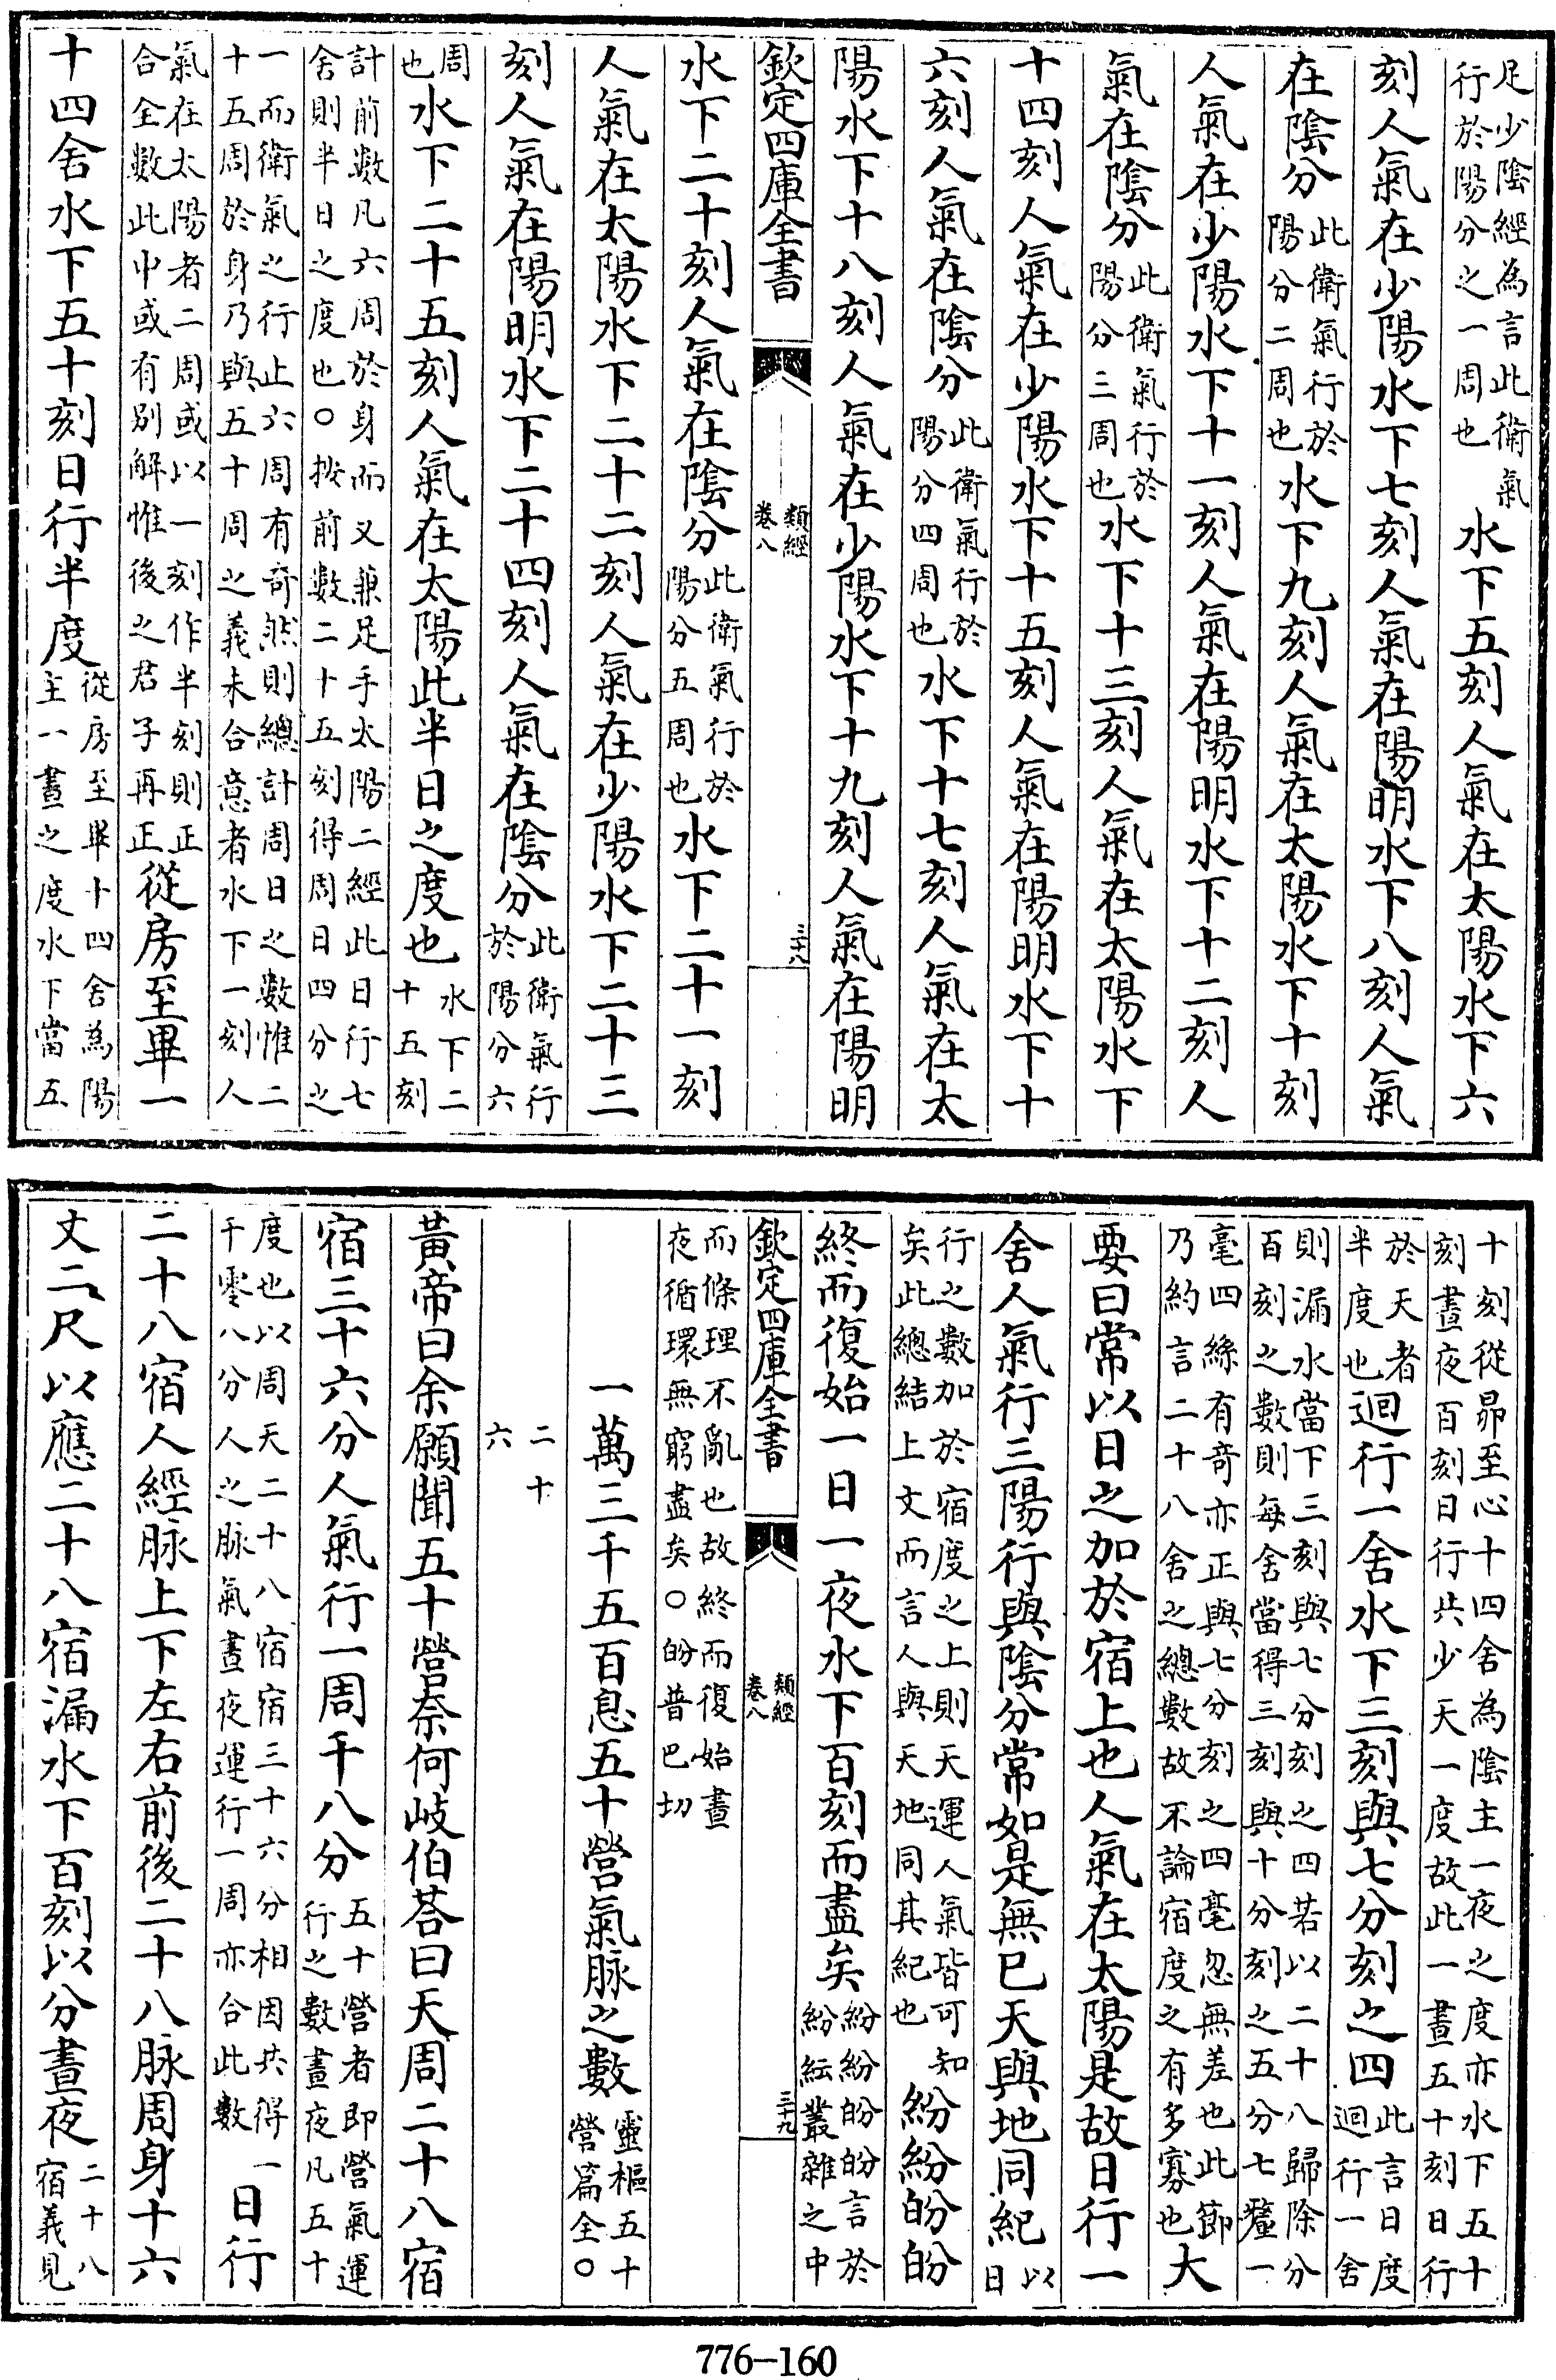 足少隂經為言此衛氣行於陽分之一周也水下五刻人氣在太陽水下六
刻人氣在少陽水下七刻人氣在陽明水下八刻人氣
在隂分此衛氣行於陽分二周也水下九刻人氣在太陽水下十刻
人氣在少陽水下十一刻人氣在陽明水下十二刻人
氣在隂分此衛氣行於陽分三周也水下十三刻人氣在太陽水下
十四刻人氣在少陽水下十五刻人氣在陽明水下十
六刻人氣在隂分此衛氣行於陽分四周也水下十七刻人氣在太
陽水下十八刻人氣在少陽水下十九刻人氣在陽明
欽定四庫全書 類經卷八 三十八
水下二十刻人氣在隂分此衛氣行於陽分五周也水下二十一刻
人氣在太陽水下二十二刻人氣在少陽水下二十三
刻人氣在陽明水下二十四刻人氣在隂分此衛氣行於陽分六
周也水下二十五刻人氣在太陽此半日之度也水下二十五刻
計前數凡六周於身而又兼足手太陽二經此日行七
舍則半日之度也○按前數二十五刻得周日四分之
一而衛氣之行止六周有奇然則總計周日之數惟二
十五周於身乃與五十周之義未合意者水下一刻人
氣在太陽者二周或以一刻作半刻則正合全數此中或有別解惟後之君子再正從房至畢一
十四舍水下五十刻日行半度從房至畢十四舍為陽主一晝之度水下當五
十刻從昴至心十四舍為隂主一夜之度亦水下五十
刻晝夜百刻日行共少天一度故此一晝五十刻日行
於天者半度也迴行一舍水下三刻與七分刻之四此言日度迴行一舍
則漏水當下三刻與七分刻之四若以二十八歸除分
百刻之數則每舍當得三刻與十分刻之五分七釐一
毫四絲有奇亦正與七分刻之四毫忽無差也此節乃約言二十八舍之總數故不論宿度之有多寡也大
要曰常以日之加於宿上也人氣在太陽是故日行一
舍人氣行三陽行與隂分常如是無已天與地同紀以日
行之數加於宿度之上則天運人氣皆可知矣此總結上文而言人與天地同其紀也紛紛盼盼
終而復始一日一夜水下百刻而盡矣紛紛盼盼言於紛紜叢雜之中
欽定四庫全書 類經卷八 三十九
而條理不亂也故終而復始晝夜循環無窮盡矣○盼普巴切
一萬三千五百息五十營氣脉之數靈樞五十營篇全○
二十六
黃帝曰余願聞五十營奈何岐伯荅曰天周二十八宿
宿三十六分人氣行一周千八分五十營者即營氣運行之數晝夜凡五十
度也以周天二十八宿宿三十六分相因共得一千零八分人之脉氣晝夜運行一周亦合此數日行
二十八宿人經脉上下左右前後二十八脉周身十六
丈二尺以應二十八宿漏水下百刻以分晝夜二十八宿義見
776-160